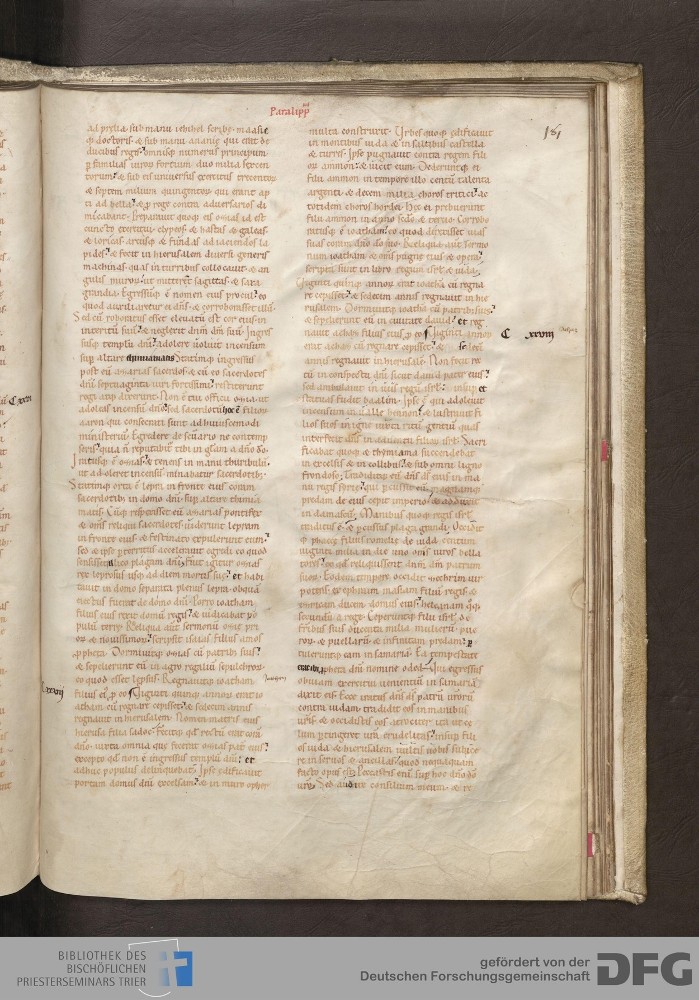 Paralipp
181
ad prelia sub manu iehihel scribe. maasie
q doctoris. & sub manu ananie qui erat de
ducibus regis. omnisq numerus principum
p familias uiroru fortium. duo milia sexcen
torum. & sub eis uniuersus exercitus trecentoru
& septem milium quingentoru. qui erant ap
ti ad bella. & p rege contra aduersarios di
micabant. Preparauit quoq eis ozias id est
cuncto exercitui. clypeos & hastas & galeas
& loricas. arcusq & fundas ad iaciendos la
pides. & fecit in hierusalem diuersi generis
machinas. quas in turribus collocauit. & an
gulis muroru. ut mitterent sagittas & saxa
grandia. Egressuq e nomen eius procul. eo
quod auxiliaretur ei dns. & corroborasset illu.
Sed cu roboratus esset eleuatu est cor eius in
interitu suu. & neglexit dnm dm suu. Ingres
susq templu dni. adolere uoluit incensum
sup altare thimiamatis. Statimq ingressus
post eu azarias sacerdos. & cu eo sacerdotes
dni septuaginta uiri fortissimi. restiterunt
regi atq dixerunt. Non e tui officii ozia ut
adoleas incensu dno. sed sacerdotu hoc e filioru
aaron qui consecrati sunt ad huiuscemodi
ministeriu. Egredere de scuario ne contemp
seris. quia n reputabit tibi in glam a dno do.
Iratusq e ozias. & tenens in manu thuribulu.
ut adoleret incensu minabatur sacerdotib.
Statimq orta e lepra in fronte eius coram
sacerdotib in domo dni. sup altare thimia
matis. Cuq respexisset eu azarias pontifex
& oms reliqui sacerdotes. uiderunt lepram
in fronte eius. & festinato expulerunt eum.
sed & ipse pterritus accelerauit egredi eo quod
sensisset ilico plagam dni. Fuit igitur ozias
rex leprosus usq ad diem mortis sue. et habi
tauit in domo separata plenus lepra. ob qua
eiectus fuerat de domo dni. Porro ioatham
filius eius rexit domu regis. & iudicabat po
pulu terre. Reliqua aut sermonu ozie prio
ru & nouissimoru. scripsit isaias filius amos
ppheta. Dormiuitq ozias cu patrib suis.
& sepelierunt eu in agro regaliu sepulchroru.
eo quod esset leprosus. Regnauitq ioatham
filius ei p eo. Uiginti quinq annoru erat io
atham cu regnare cepisset. & sedecim annis
regnauit in hierusalem. Nomen matris eius
hierusa filia sadoc. Fecitq qd rectu erat cora
dno. iuxta omnia que fecerat ozias pat eius.
excepto qd non e ingressus templu dni. et
adhuc populus delinquebat. Ipse edificauit
portam domus dni excelsam. & in muro ophel
multa construxit. Urbes quoq edificauit
in montibus iuda. & in saltibus castella
& turres. Ipse pugnauit contra regem filio
ru ammon. & uicit eum. Dederuntq ei
filii ammon in tempore illo centu talenta
argenti. & decem milia choros tritici. ac
totidem choros hordei. Hec ei prebuerunt
filii ammon in anno scdo & tercio. Corrobo
ratusq e ioatham. eo quod direxisset uias
suas coram dno do suo. Reliqua aut sermo
num ioatham & oms pugne eius & opera.
scripta sunt in libro regum isrl & iuda.
Uiginti quinq annoru erat ioatha cu regna
re cepisset. & sedecim annis regnauit in hie
rusalem. Dormiuitq ioatha cu patribus suis.
& sepelierunt eu in ciuitate dauid. et reg
nauit achaz filius eius p eo. Uiginti annoru
erat achaz cu regnare cepisset. & sedeci
annis regnauit in hierusalem. Non fecit rec
tu in conspectu dni sicut dauid pater eius.
sed ambulauit in uiis regu isrl. insup et
statuas fudit baalim. Ipse e qui adoleuit
incensum in ualle hennon. & lustrauit fi
lios suos in igne iuxta ritu gentiu quas
interfecit dns in aduentu filioru isrl. Sacri
ficabat quoq & thymiama succendebat
in excelsis & in collibus. & sub omni ligno
frondoso. Tradiditq eu dns ds eius in ma
nu regis syrie. qui pcussit eu. magnamq
predam de eius cepit imperio. & adduxit
in damascu. Manibus quoq regis isrl
traditus e. & pcussus plaga grandi. Occidit
q phacee filius romelie de iuda centum
uiginti milia in die uno. oms uiros bella
tores. eo qd reliquissent dnm dm patrum
suoru. Eodem tempore occidit zechri uir
potens ex ephraim maasiam filiu regis. &
ezricam ducem domus eius. helcanam qq
secundu a rege. Ceperuntq filii isrl de
fribus suis ducenta milia mulieru. pue
roru & puellaru. & infinitam predam. p
tuleruntq eam in samaria. Ea tempestate
erat ibi ppheta dni nomine oded. Qui egressus
obuiam exercitui uenienti in samaria
dixit eis. Ecce iratus dns ds patru uroru
contra iudam tradidit eos in manibus
uris. & occidistis eos atrociter. ita ut ce
lum ptingeret ura crudelitas. insup fili
os iuda & hierusalem uultis uobis subice
re in seruos & ancillas. quod nequaquam
facto opus e. Peccastis eni sup hoc dno do
uro. Sed audite consilium meum. & re
C xxviii
Achaz
Lxxvii
Joatham
BIBLIOTHEK DES
BISCHÖFLICHEN
PRIESTERSEMINARS TRIER
gefördert von der
Deutschen Forschungsgemeinschaft
DFG